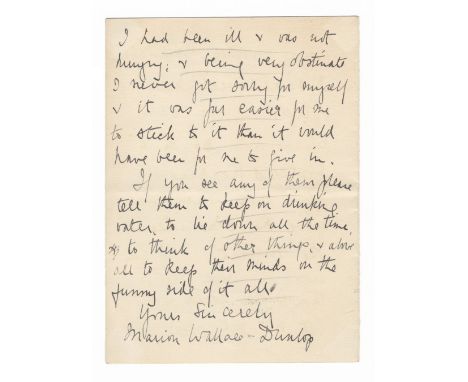 I had been ill & was not
hungry, & being very obstinate
I never got sorry for myself
& it was far easier for me
to stick to it than it would
have been for me to give in.
If you see any of them please
tell them to keep on drinking
water, to lie down all the time,
to think of other things, & above
all to keep their minds on the
funny side of it all.
Yours Sincerely
Marion Wallace-Dunlop